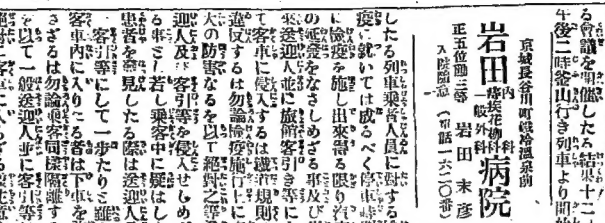 る會議を開催したる結果十二
午後二時釜山行き列車より開始
京城長谷川町鐵冷温泉前
岩田
内科
痔疾花柳科
一般外科
病院
正五位勳三等 岩田末彦
入院隨意 (電話一六二〇番)
したる列車乘客人員に對する
疫に就いては成るべく停車時
に檢疫を施し出來得る限り汽
の延發をなさしめざる事及び
來送迎人並に旅館客引き等に
て客車に侵入するは鐵道規則
違反するは勿論檢疫施行上に
大の防害なるを以て絕對之等
迎人及び客引等を侵入せしめ
る事とし若し乘客中に疑はし
患者を發見したる際は送迎人
客引等にして一歩たりと雖
客車內に入りたる者は下車を
さざるは勿論乘客同樣隔離す
を以て一般送迎人並に客引等